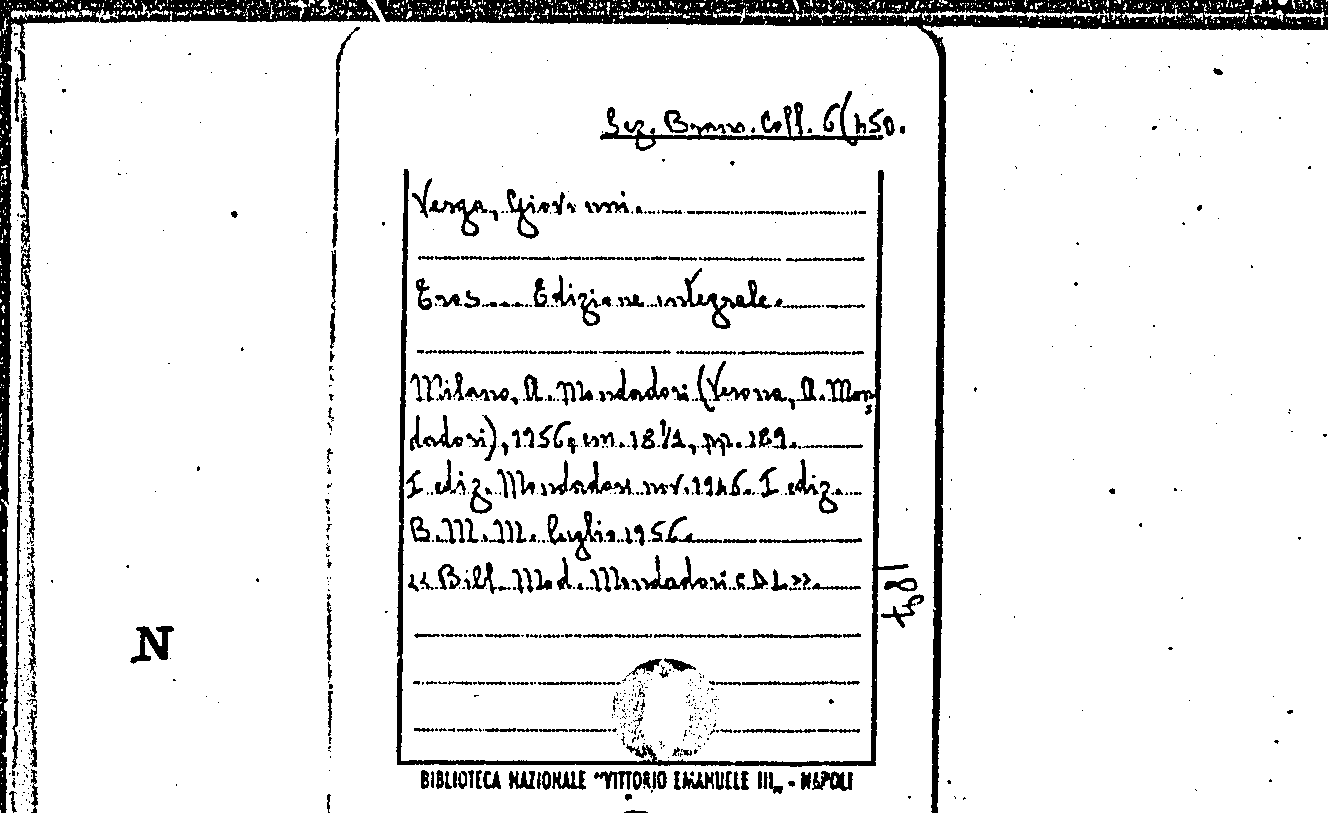 Sez. Branc. Coll. 6(450.
Verga, Giovanni.
Eros.... Edizione integrale.
Milano, A. Mondadori (Verona, A. Mon-
dadori), 1956, cm. 18½, pp. 189.
I ediz. Mondadori nov. 1946. I ediz.
B.M.M. luglio 1956.
«Bibl. Mod. Mondadori
N
BIBLIOTECA NAZIONALE "VITTORIO EMANUELE III„ - NAPOLI